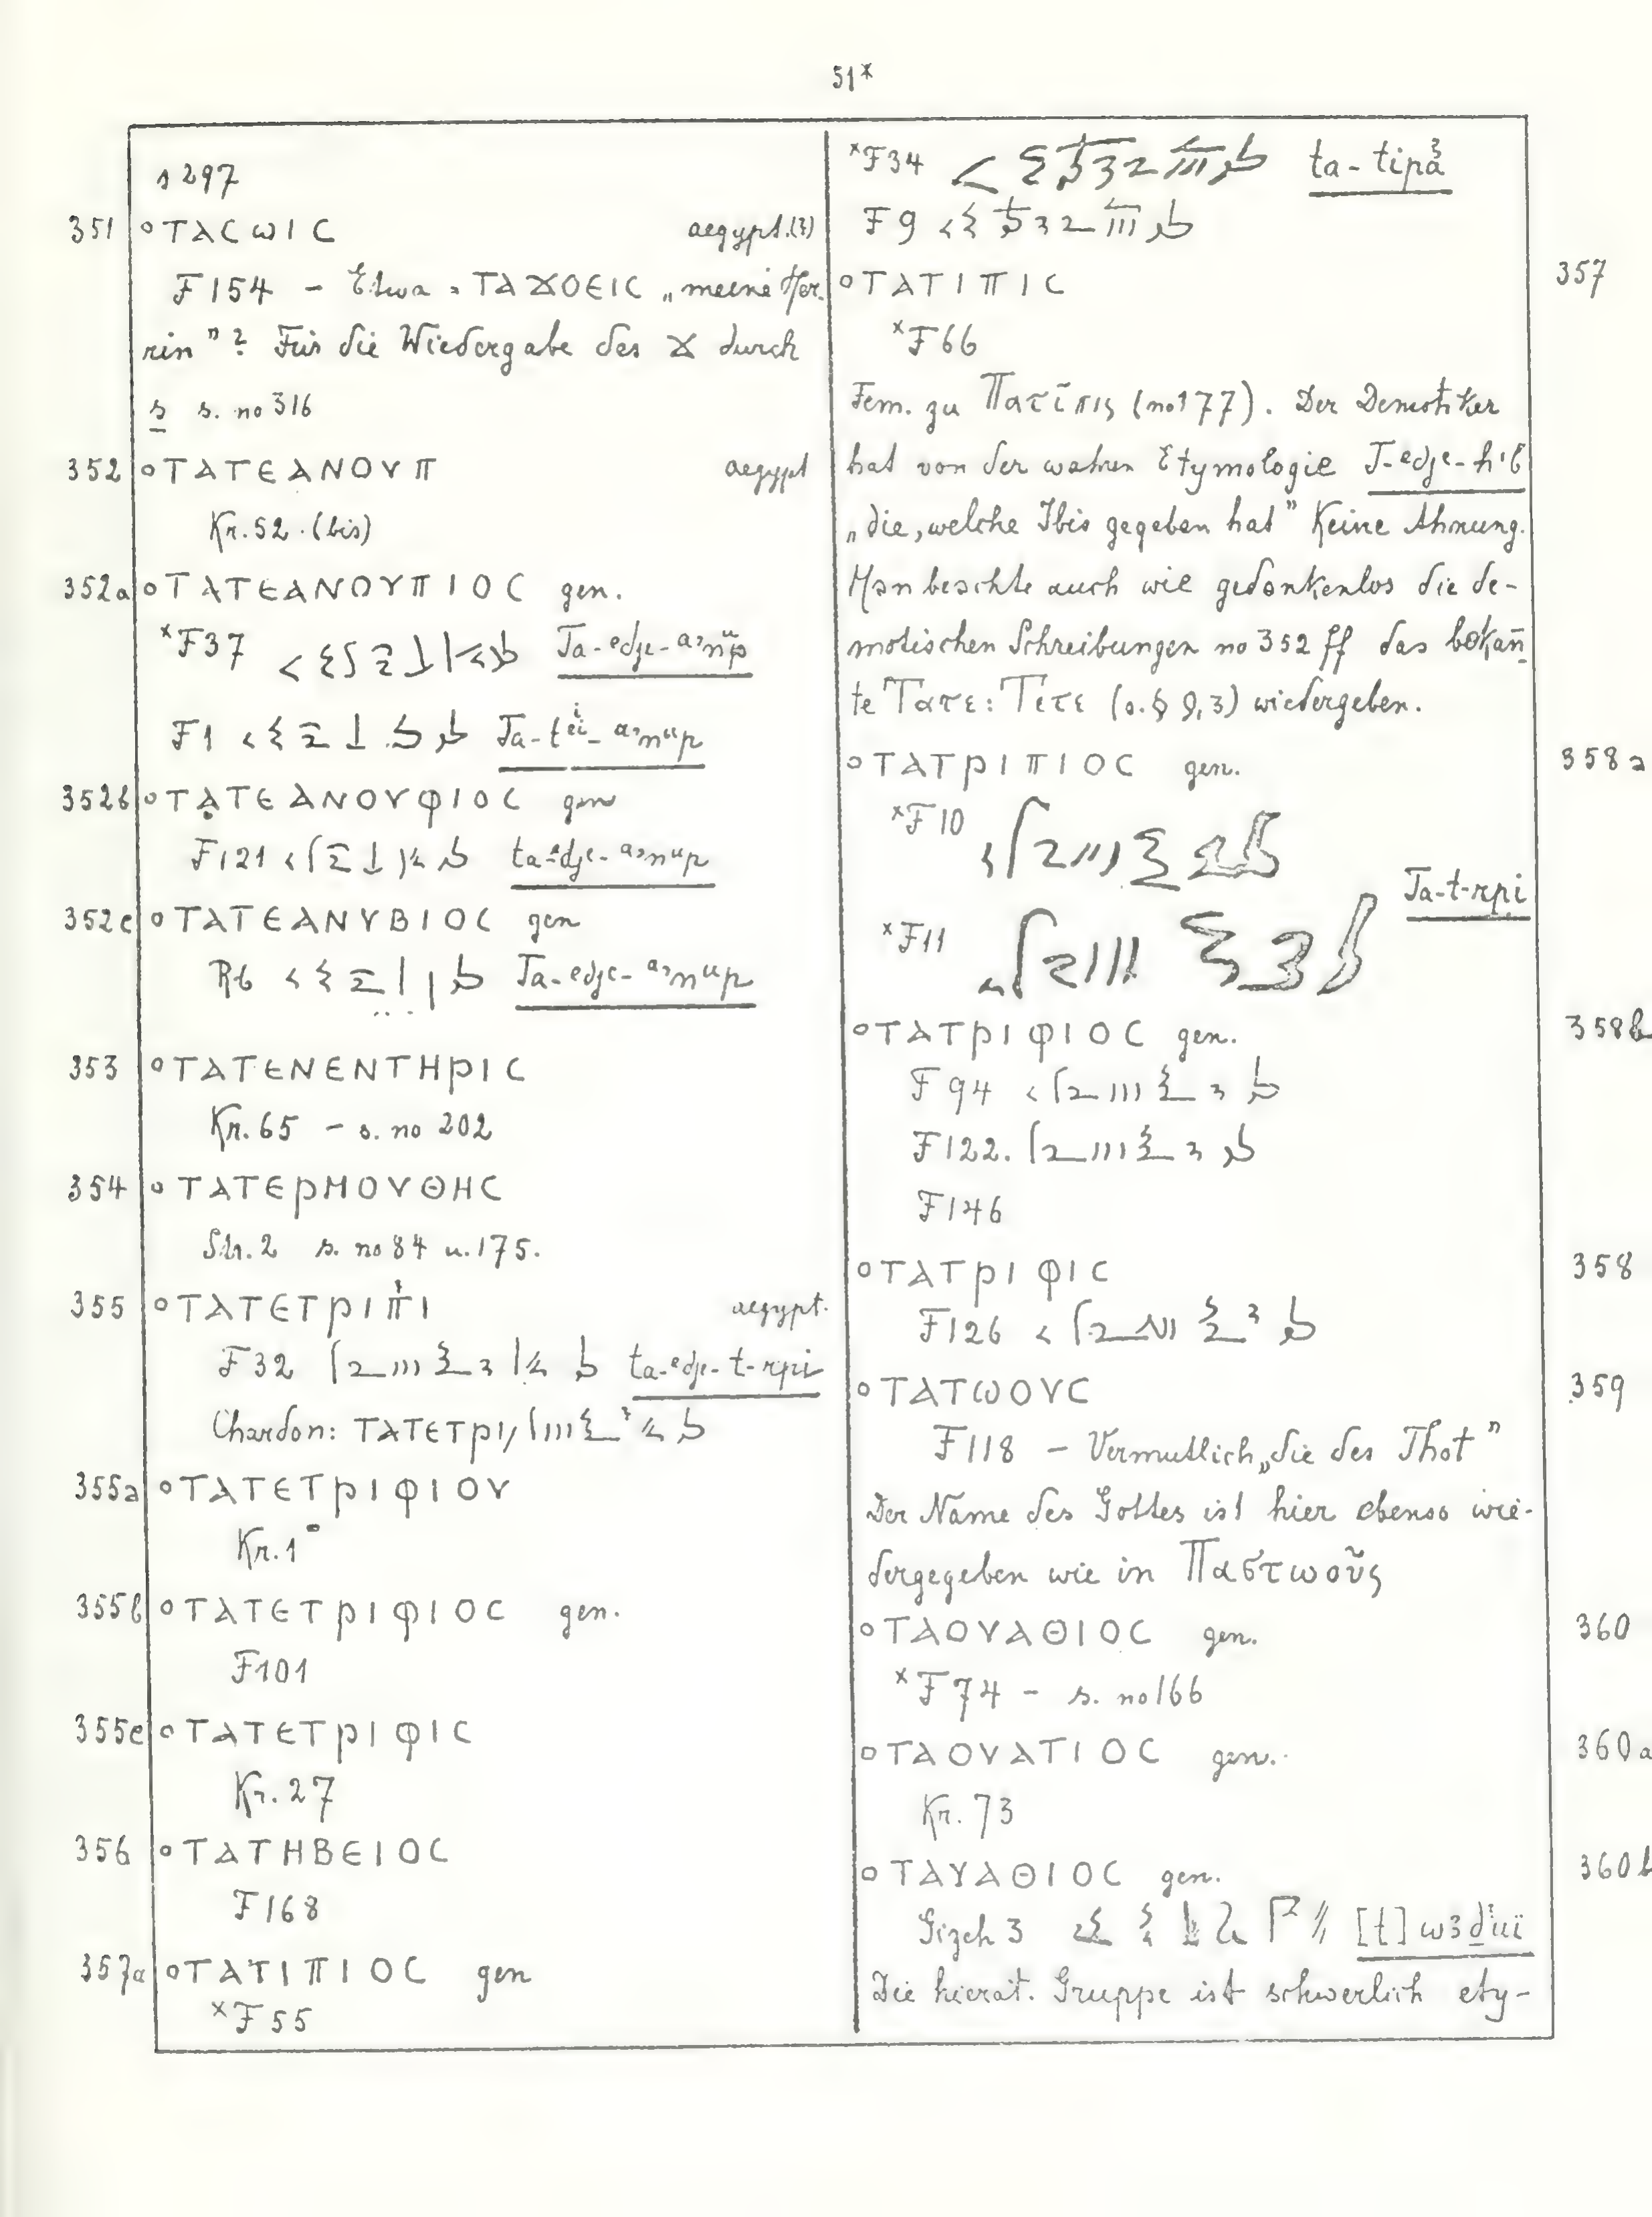 51*
s 297
351 ○ΤΑCωΙC aegypt.(?)
F154 – Etwa = ΤΑϪΟΕΙC „meine Her-
rin"? Für die Wiedergabe des Ϫ durch
s s. no 316
352 ○ΤΑΤΕΑΝΟΥΠ aegypt
Kr. 52. (bis)
352a ○ΤΑΤΕΑΝΟΥΠΙΟC gen.
*F37 Ta-edje-a'nup
F1 Ta-tei-a'nup
352b ○ΤΑΤΕΑΝΟΥΦΙΟC gen
F121 ta-edje-a'nup
352c ○ΤΑΤΕΑΝΥΒΙΟC gen
R6 Ta-edje-a'nup
353 ○ΤΑΤΕΝΕΝΤΗΡΙC
Kr. 65 – s. no 202
354 ○ΤΑΤΕΡΜΟΥΘΗC
Str. 2 s. no 84 u. 175.
355 ○ΤΑΤΕΤΡΙΠΙ aegypt.
F32 ta-edje-t-rpi
Chardon: ΤΑΤΕΤΡΙ
355a ○ΤΑΤΕΤΡΙΦΙΟΥ
Kr. 1
355b ○ΤΑΤΕΤΡΙΦΙΟC gen.
F101
355c ○ΤΑΤΕΤΡΙΦΙC
Kr. 27
356 ○ΤΑΤΗΒΕΙΟC
F168
357a ○ΤΑΤΙΠΙΟC gen
*F55
*F34 ta-tipa
F9
○ΤΑΤΙΠΙC 357
*F66
Fem. zu Πατῖπις (no 177). Der Demotiker
hat von der wahren Etymologie T-edje-hib
„die, welche Ibis gegeben hat" Keine Ahnung.
Man beachte auch wie gedankenlos die de-
motischen Schreibungen no 352 ff das bekan̄-
te Τατε: Τετε (o. § 9,3) wiedergeben.
○ΤΑΤΡΙΠΙΟC gen. 358a
*F10
Ta-t-rpi
*F11
○ΤΑΤΡΙΦΙΟC gen. 358b
F94
F122.
F146
○ΤΑΤΡΙΦΙC 358
F126
○ΤΑΤωΟΥC 359
F118 – Vermutlich „die des Thot"
Der Name des Gottes ist hier ebenso wie-
dergegeben wie in Παστωοῦς
○ΤΑΟΥΑΘΙΟC gen. 360
*F74 – s. no 166
○ΤΑΟΥΑΤΙΟC gen. 360a
Kr. 73
○ΤΑΥΑΘΙΟC gen. 360b
Gizeh 3
Die hierat. Gruppe ist schwerlich ety-